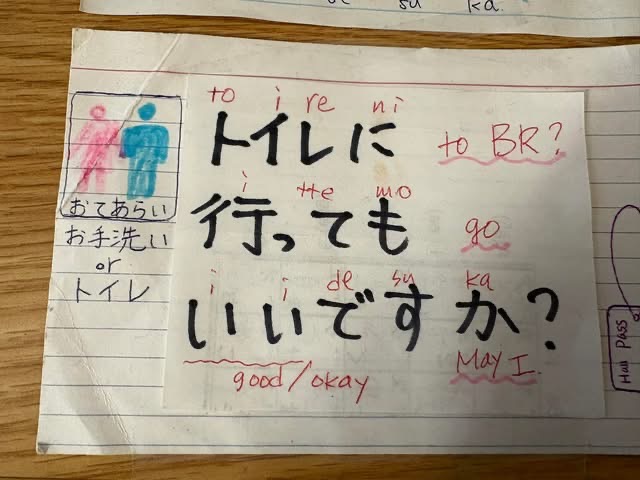 su ka
おてあらい
お手洗い
or
トイレ
to i re ni
トイレに to BR?
i tte mo
行っても go
i i de su ka
いいですか?
good/okay May I.
Hall Pass